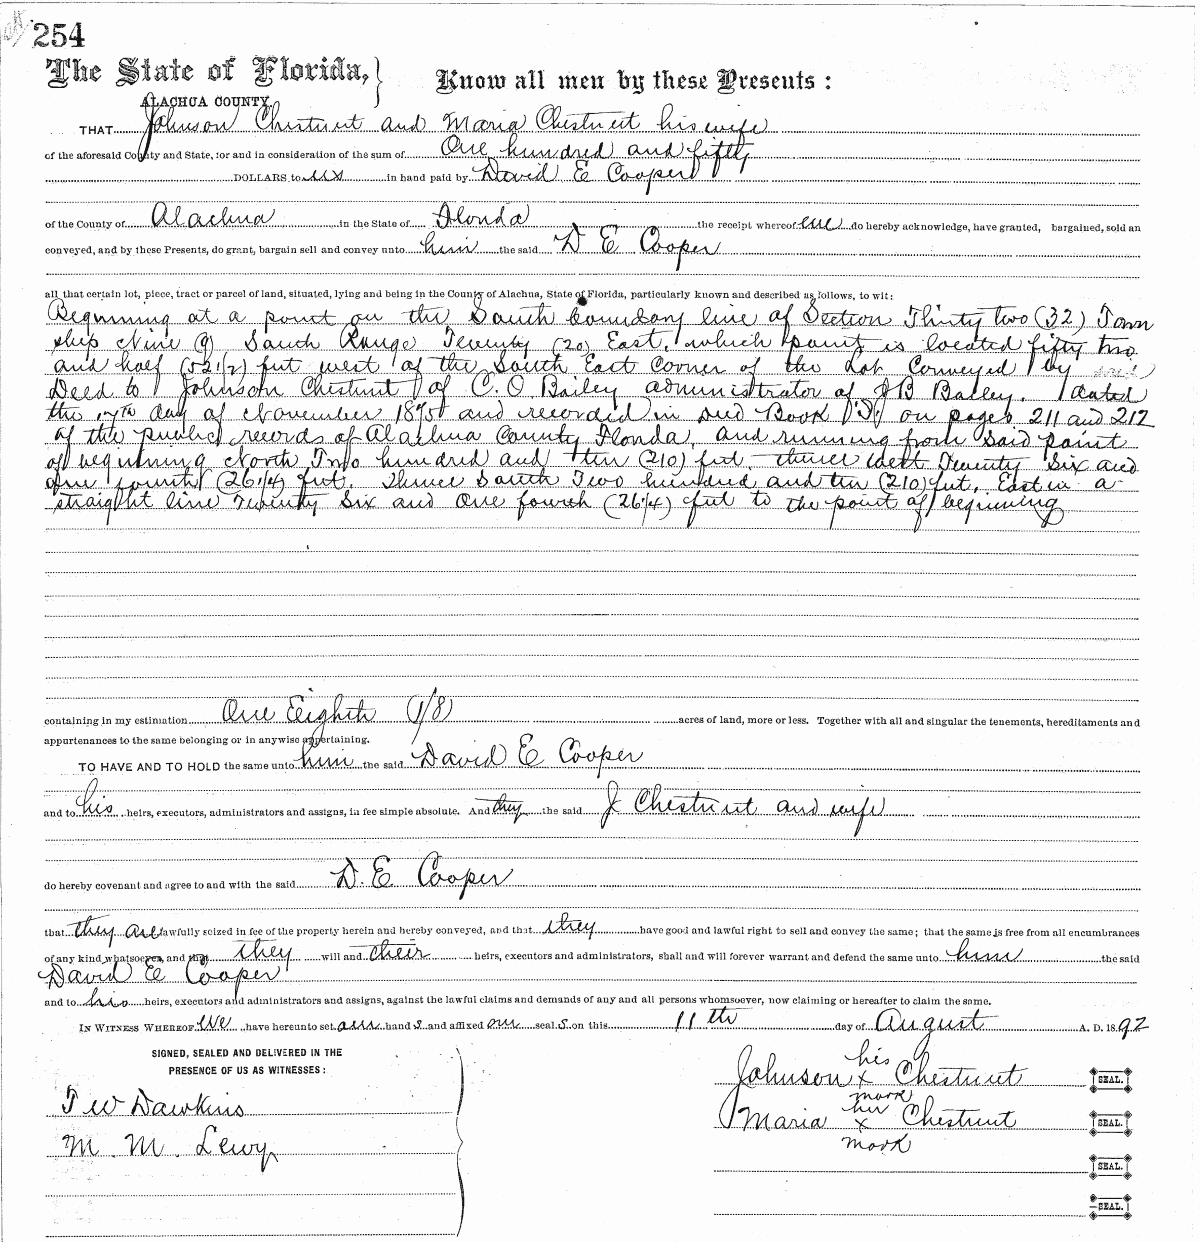 254
The State of Florida,
ALACHUA COUNTY.
Know all men by these Presents :
THAT Johnson Chestnut and Maria Chestnut his wife
of the aforesaid County and State, for and in consideration of the sum of One hundred and fifty
DOLLARS to us in hand paid by David E Cooper
of the County of Alachua in the State of Florida the receipt whereof we do hereby acknowledge, have granted, bargained, sold an
conveyed, and by these Presents, do grant, bargain sell and convey unto him the said D E Cooper
all that certain lot, piece, tract or parcel of land, situated, lying and being in the County of Alachua, State of Florida, particularly known and described as follows, to wit:
Beginning at a point on the South boundary line of Section Thirty two (32) Town
ship Nine (9) South Range Twenty (20) East, which point is located fifty two
and half (52 1/2) feet west of the South East Corner of the Lot Conveyed by
Deed to Johnson Chestnut of C. O Bailey administrator of J B Bailey. dated
the 17th day of November 1875 and recorded in Deed Book on pages 211 and 212
of the public records of Alachua County Florida, and running from said point
of beginning North Two hundred and ten (210) feet. thence West Twenty Six and
one fourth (26 1/4) feet. thence South Two hundred and ten (210) feet, East in a
straight line Twenty Six and One fourth (26 1/4) feet to the point of beginning
containing in my estimation One Eighth (1/8) acres of land, more or less. Together with all and singular the tenements, hereditaments and
appurtenances to the same belonging or in anywise appertaining.
TO HAVE AND TO HOLD the same unto him the said David E Cooper
and to his heirs, executors, administrators and assigns, in fee simple absolute. And they the said J Chestnut and wife
do hereby covenant and agree to and with the said D. E Cooper
that they are lawfully seized in fee of the property herein and hereby conveyed, and that they have good and lawful right to sell and convey the same; that the same is free from all encumbrances
of any kind whatsoever, and that they will and their heirs, executors and administrators, shall and will forever warrant and defend the same unto him the said
David E Cooper
and to his heirs, executors and administrators and assigns, against the lawful claims and demands of any and all persons whomsoever, now claiming or hereafter to claim the same.
IN WITNESS WHEREOF We have hereunto set our hand s and affixed our seal s on this 11th day of August A. D. 1892
SIGNED, SEALED AND DELIVERED IN THE
PRESENCE OF US AS WITNESSES:
T W Dawkins
M. M. Lewy
his
Johnson x Chestnut SEAL.
mark
her
Maria x Chestnut SEAL.
mark
SEAL.
SEAL.